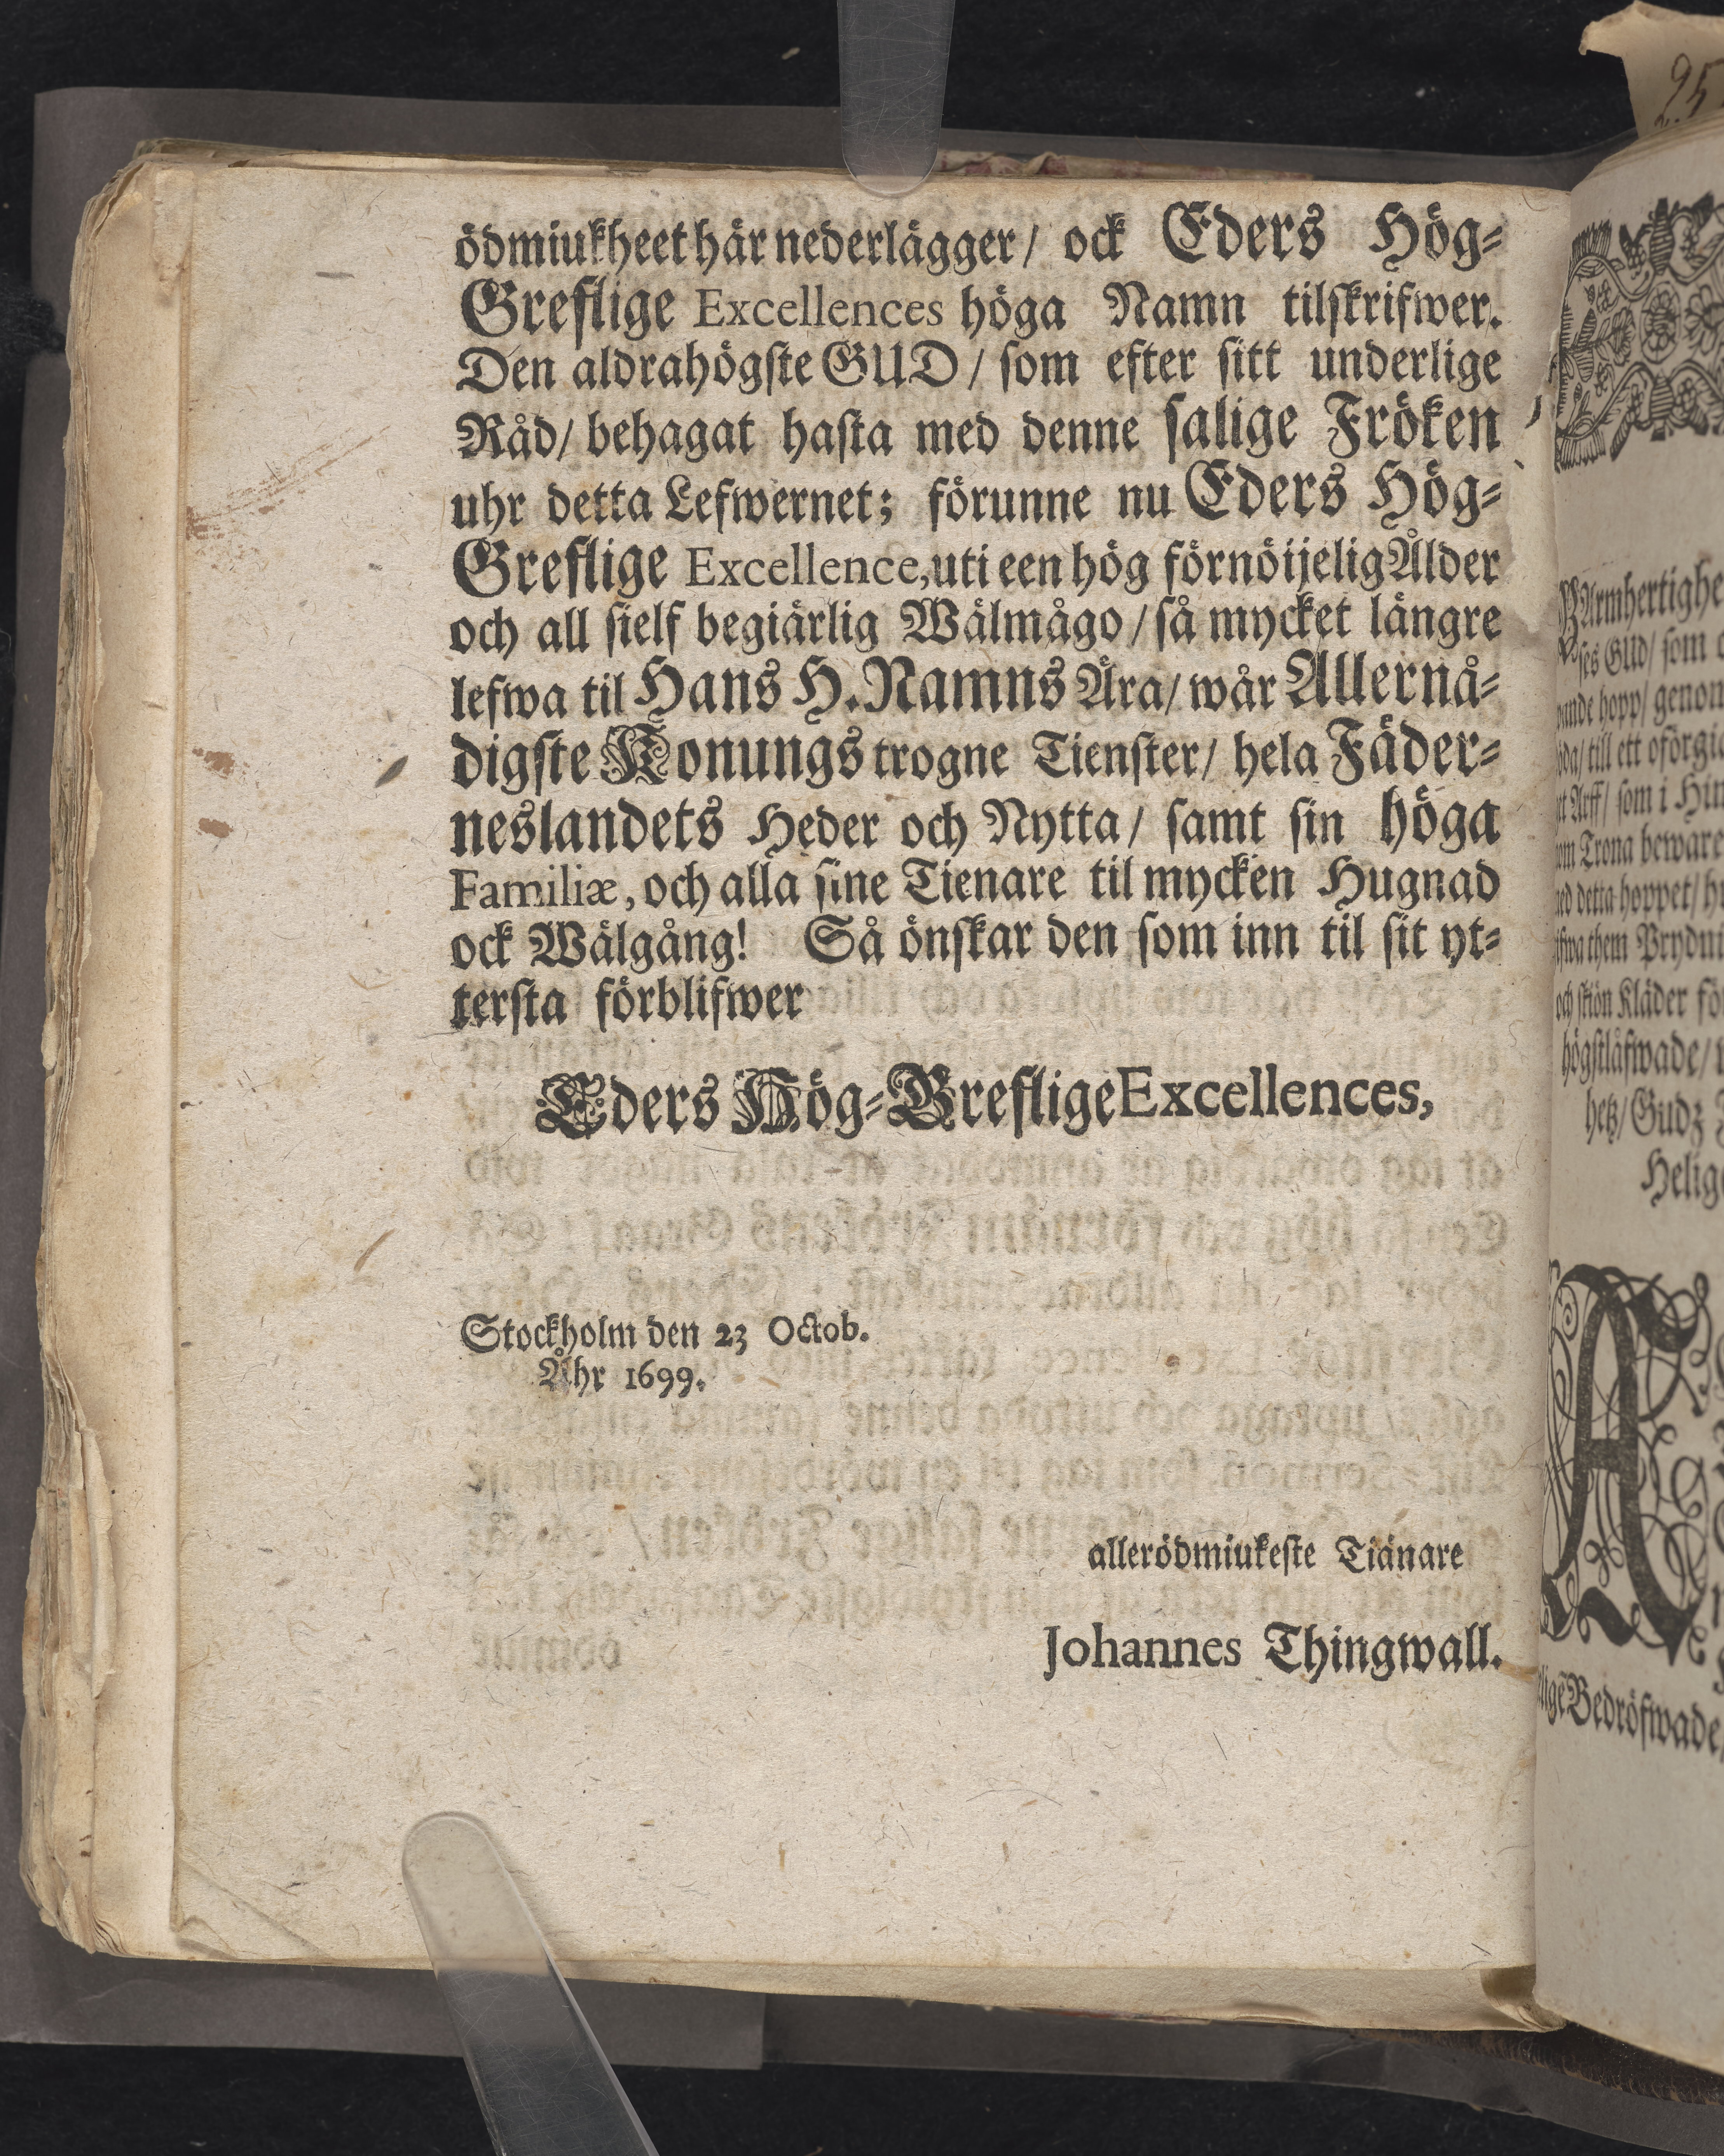 ödmiukheet här nederlägger/ ock Eders Hög-
Greflige Excellences höga Namn tilskrifwer.
Den aldrahögste GUD/ som efter sitt underlige
Råd/ behagat hasta med denne salige Fröken
uhr detta Lefwernet; förunne nu Eders Hög-
Greflige Excellence, uti een hög förnöijelig Ålder
och all sielf begiärlig Wälmågo/ så mycket längre
lefwa til Hans H. Namns Ära/ wår Allernå-
digste Konungs trogne Tienster/ hela Fäder-
neslandets Heder och Nytta/ samt sin höga
Familiæ, och alla sine Tienare til mycken Hugnad
ock Wälgång! Så önskar den som inn til sit yt-
tersta förblifwer
Eders Hög-Greflige Excellences,
Stockholm den 23 Octob.
Åhr 1699.
allerödmiukeste Tiänare
Johannes Thingwall.
95
BArmhertighe
ses GUd/ som
hopp/ genom
till ett oförgiä
Arff/ som i Him
Trona beware
detta hoppet/
them Prydni
och skiön Kläder för
högstlåfwade/
hetz/ Gudz
Helig
A
Bedröfwade,